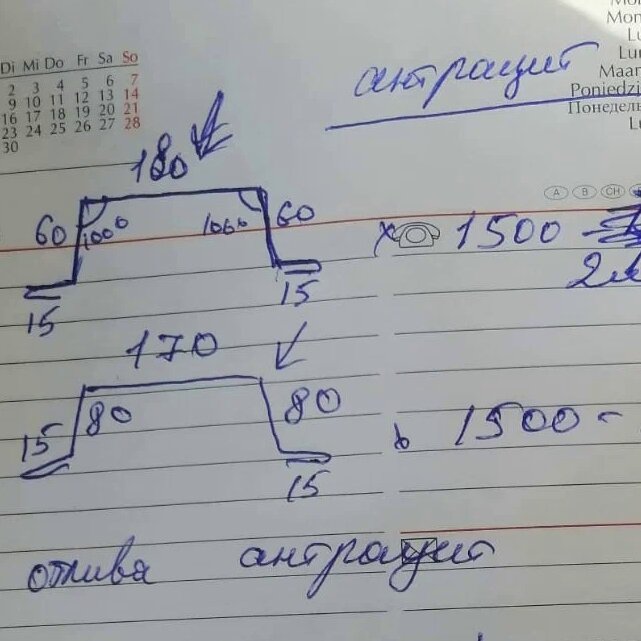 Mo
Mon
Lu
Lun
Maan
Poniedzi
Понедель
Lu
Di Mi Do Fr Sa So
2 3 4 5 6 7
9 10 11 12 13 14
16 17 18 19 20 21
23 24 25 26 27 28
30
антрацит
A B CH
180
60 100° 100° 60
x 1500 -
2
15 15
170
15 80 80
1500 -
15
отлива антрацит